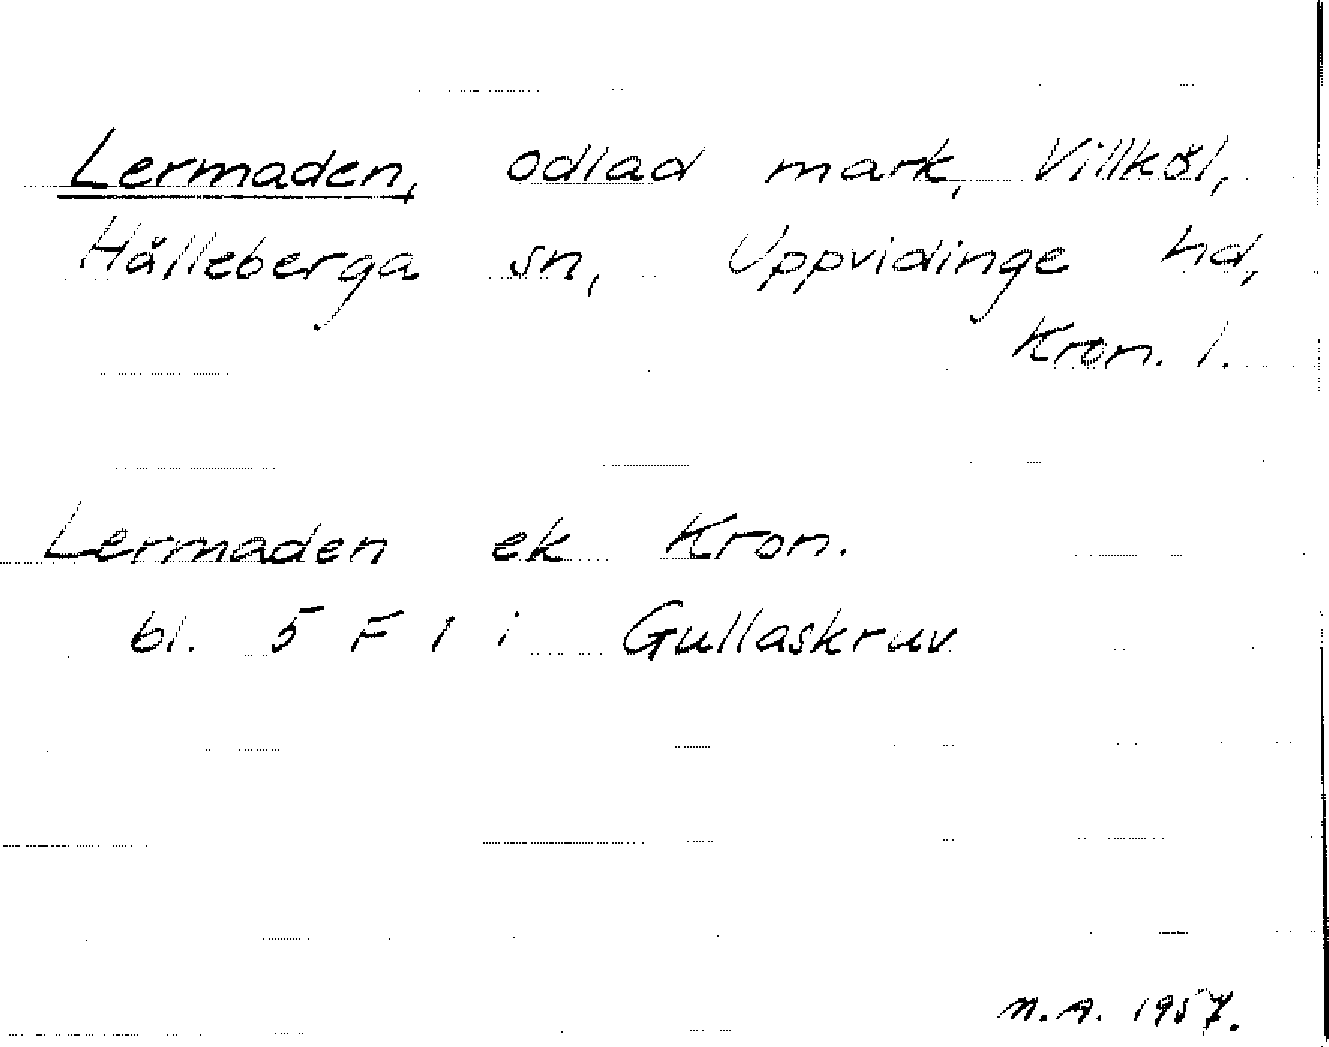 Lermaden, odlad mark, Villköl,
Hälleberga sn, Uppvidinge hd,
Kron. l.
Lermaden ek Kron.
bl. 5 F 1 i Gullaskruv
M.A. 1957.